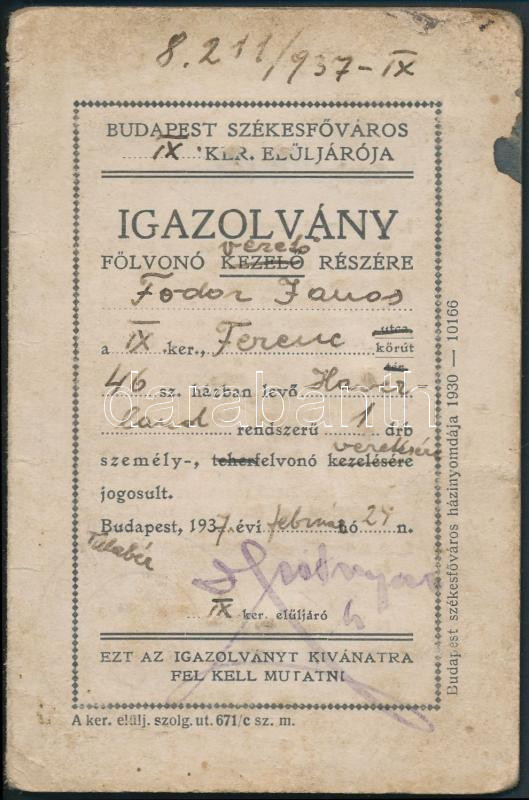 8.211/937-IX
BUDAPEST SZÉKESFŐVÁROS
IX. KER. ELÜLJÁRÓJA
IGAZOLVÁNY
vezető
FÖLVONÓ KEZELŐ RÉSZÉRE
Fodor Janos
a IX. ker., Ferenc utca
körút
tér
46 sz. házban levő
rendszerű 1 drb
vezetésére
személy-, teherfelvonó kezelésére
jogosult.
Budapest, 1937. évi február hó 24 n.
IX ker. elüljáró
EZT AZ IGAZOLVÁNYT KIVÁNATRA
FEL KELL MUTATNI
A ker. elülj. szolg. ut. 671/c sz. m.
Budapest székesfőváros házinyomdája 1930 — 10166
darabanth